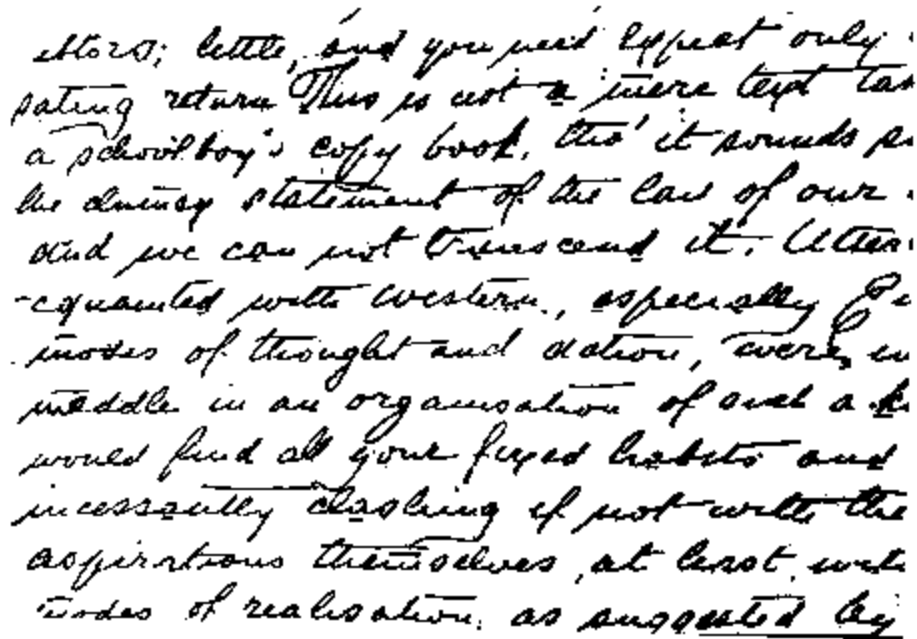 little, and you need expect only
sating return This is not a mere text
a schoolboy's copy book, tho' it sounds
the clumsy statement of the law of our
and we can not transcend it. Utter
-cquainted with western, especially
modes of thought and action, were
meddle in an organisation of such a
would find all your fixed habits and
incessantly clashing if not with the
aspirations themselves, at least with
modes of realisation as suggested by